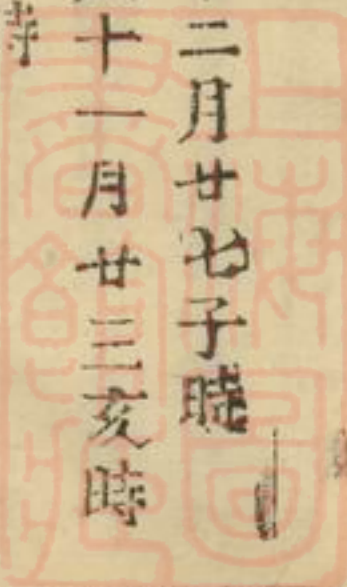 二月廿七子時
十一月廿三亥時
時